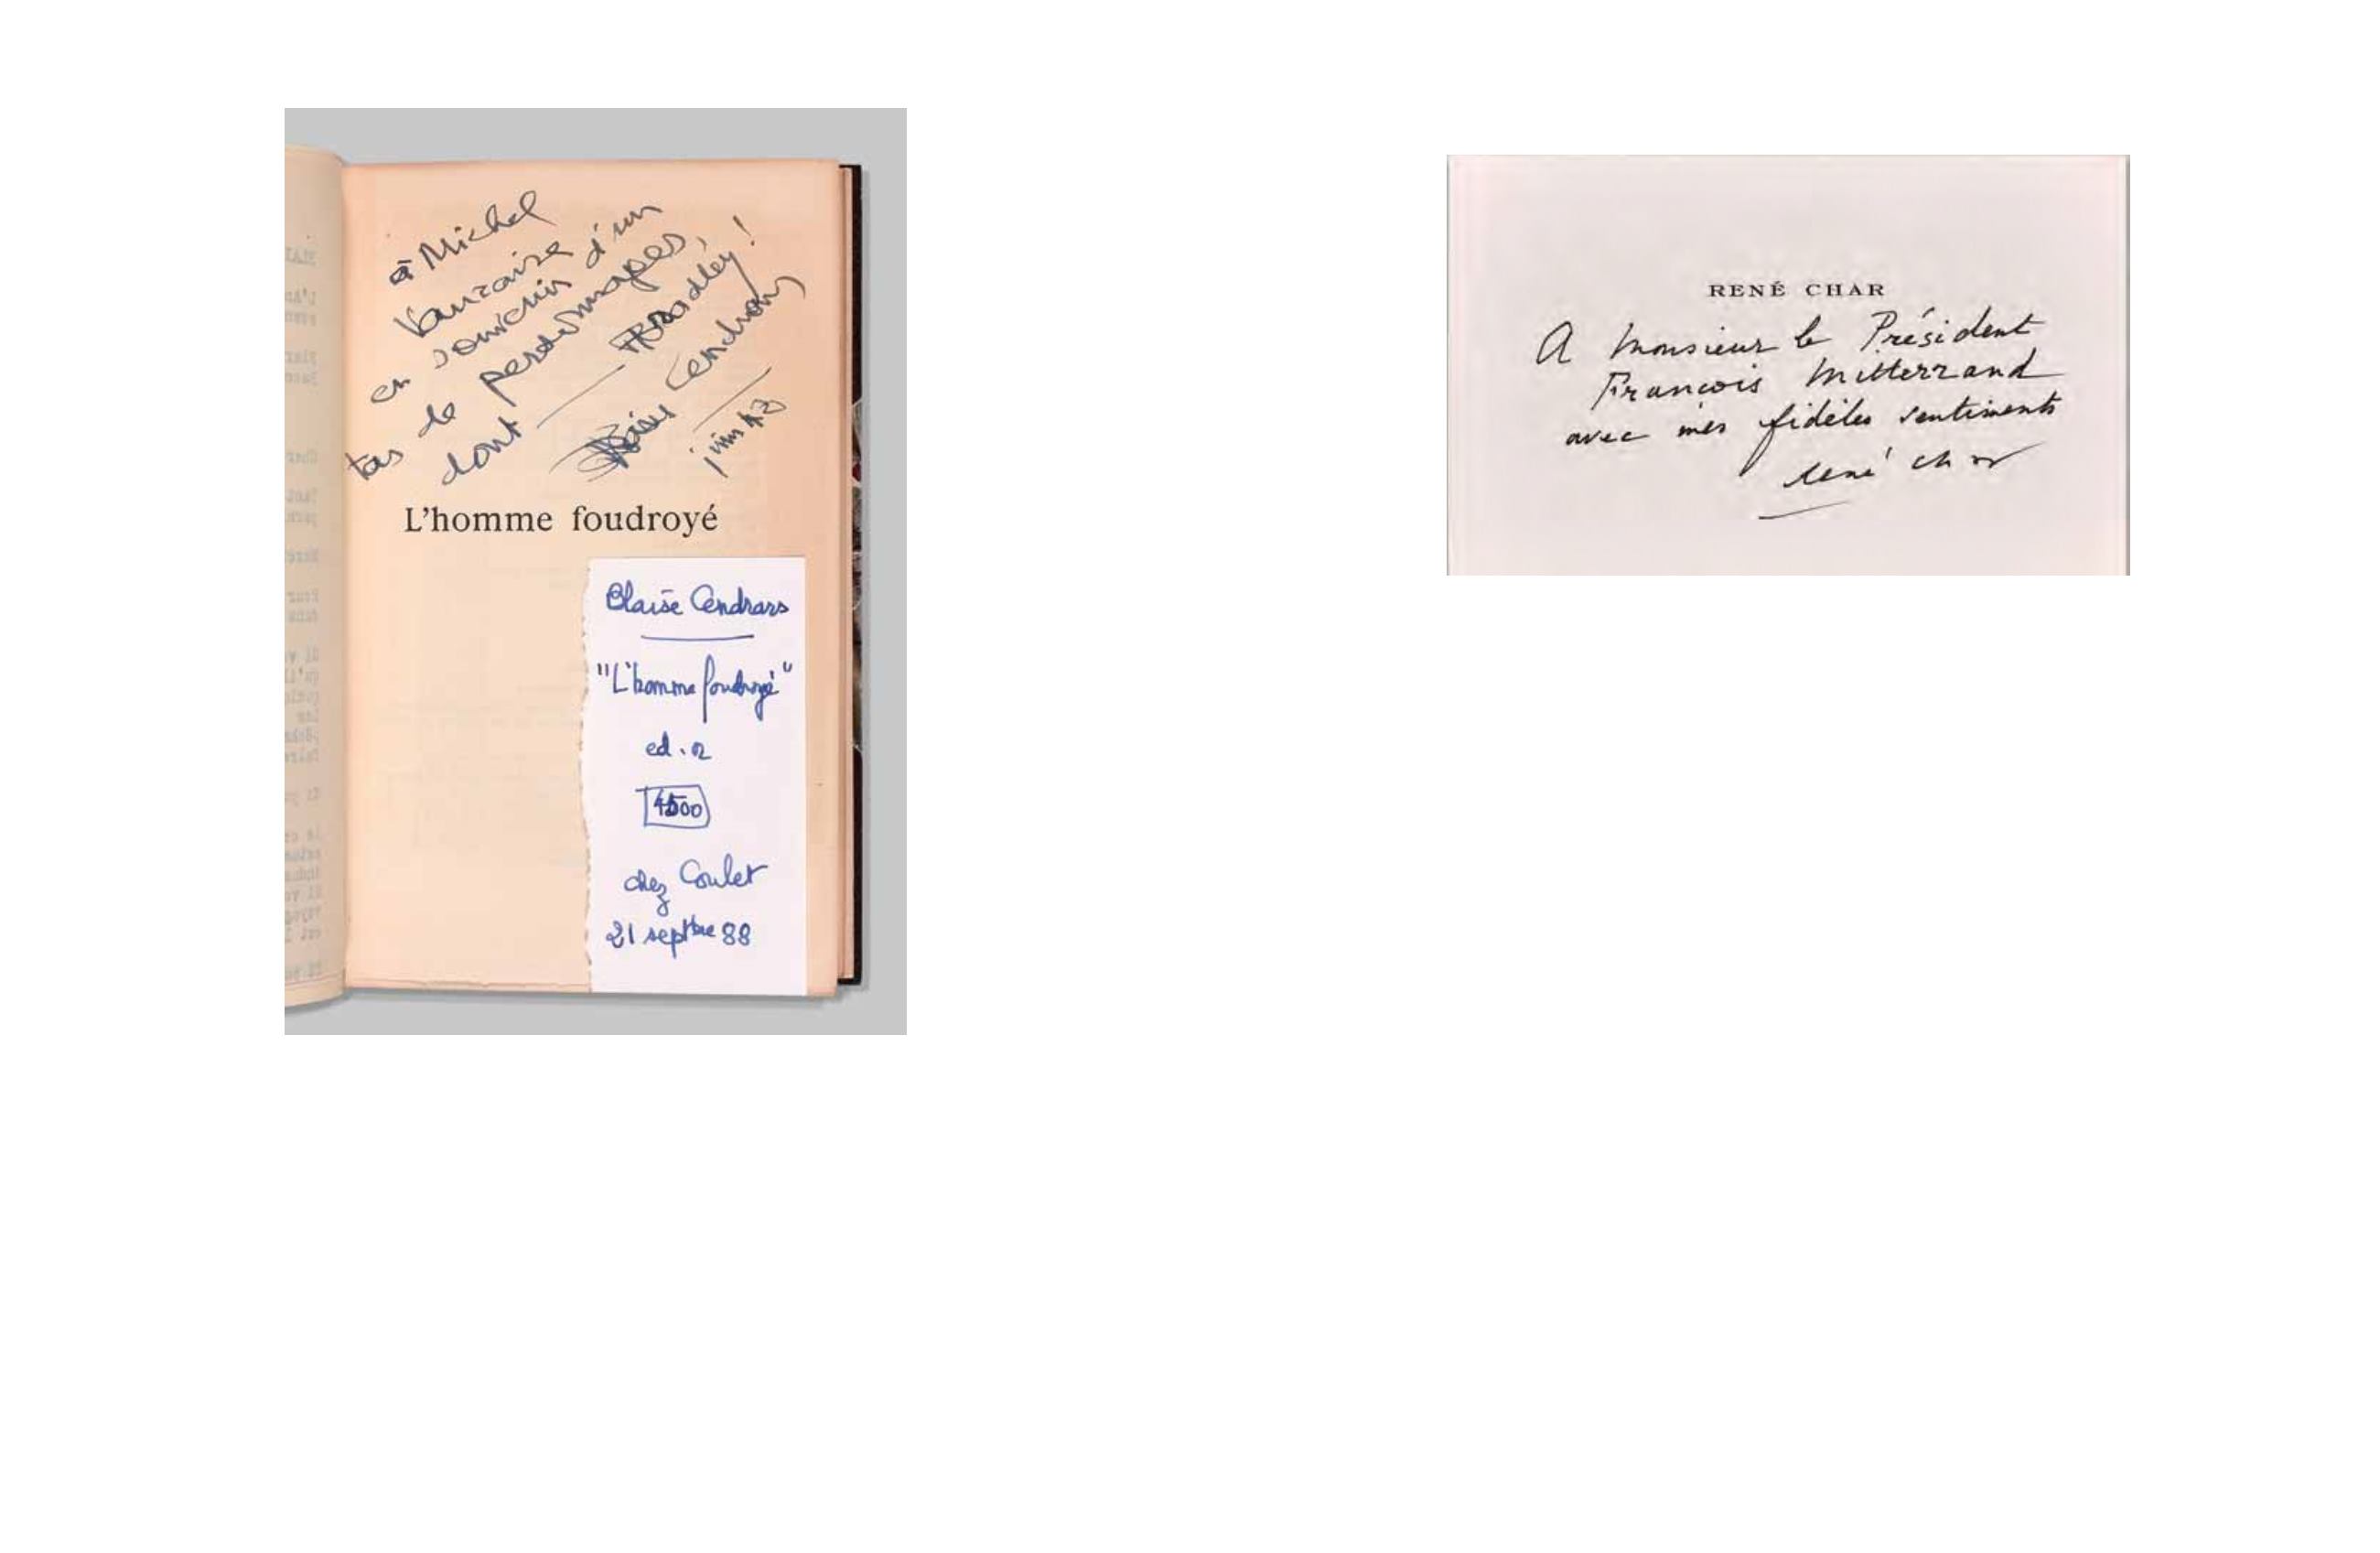 à Michel
Vaucaire
en souvenir d'un
tas de personnages,
dont — Bradley !
Blaise Cendrars
L'homme foudroyé
Blaise Cendrars
"L'homme foudroyé"
ed. o
4500
chez Coulet
21 septbre 88
RENÉ CHAR
A Monsieur le Président
François Mitterrand
avec mes fidèles sentiments
René Char